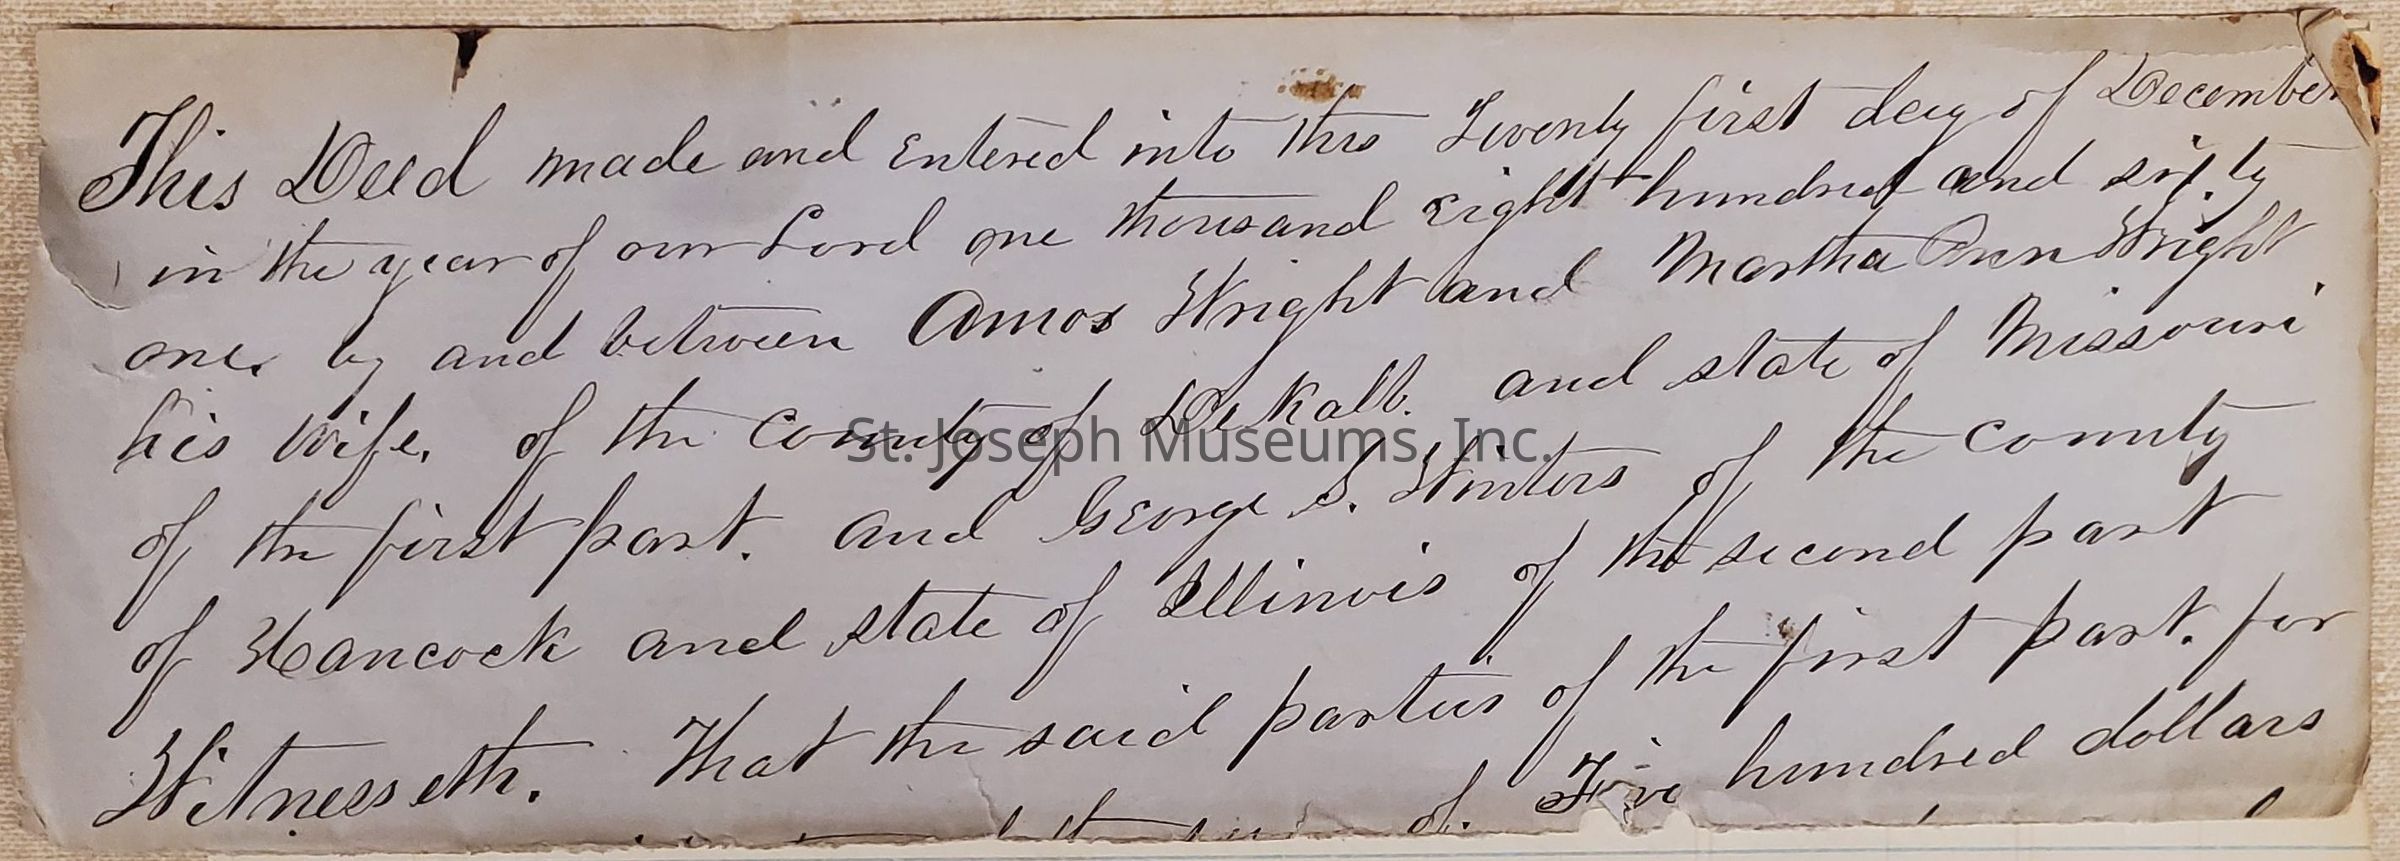 This Deed made and Entered into this Twenty first day of December
in the year of our Lord one thousand Eight hundred and sixty
one. by and between Amos Wright and Martha Ann Wright
his wife. of the County of DeKalb. and state of Missouri
of the first part. and George S. Winters of the County
of Hancock and state of Illinois of the second part
Witnesseth. That the said parties of the first part. for
of. Five hundred dollars
St. Joseph Museums, Inc.